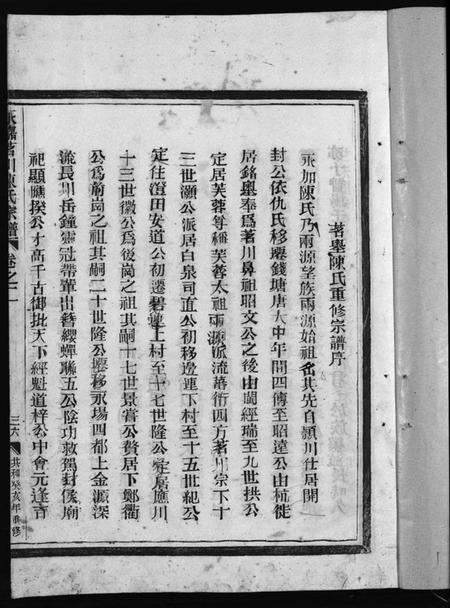 茗嶴陳氏重修宗譜序
永加陳氏乃兩源望族兩源始祖岙其先自頴川仕居開
封公依仇氏移遷錢塘唐大中年間四傳至昭遠公由杭徙
居銘嶴奉爲著川鼻祖昭文公之後由閩經瑞至九世拱公
定居芙蓉尊稱芙蓉太祖兩源派流蕃衍四方著川宗下十
三世灝公派居白泉司直公初移邊連下村至十五世紀公
定住澄田安道公初遷碧蓮上村至十七世隆公定居應川
十三世徽公爲後崗之祖其嗣十七世景嘗公贅居下鄭衢
公爲前崗之祖其嗣二十世隆公遷移永場四都上金源深
流長川岳鐘靈冠帶軰出簪纓蟬聯五公陰功救駕封侯廟
祀顯應揆公才高千古御批天下經魁道梓公中會元逢吉
永嘉茗川陳氏宗譜 卷之一 三六 共和癸亥年重修